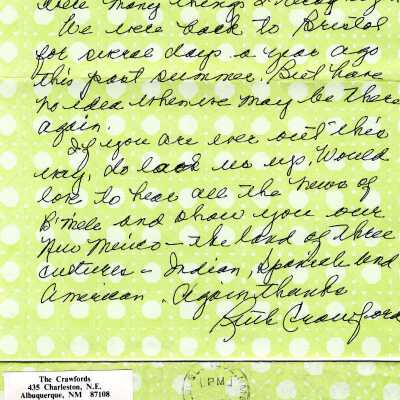 many things I
We were back to Bristol
for several days a year ago
this past summer. But have
no idea when we may be there
again.
If you are ever out this
way, do look us up. Would
love to hear all the news of
B'ville and show you our
New Mexico — the land of three
cultures — Indian, Spanish and
American. Again, thanks
Ruth Crawford
The Crawfords
435 Charleston, N.E.
Albuquerque, NM 87108
PM